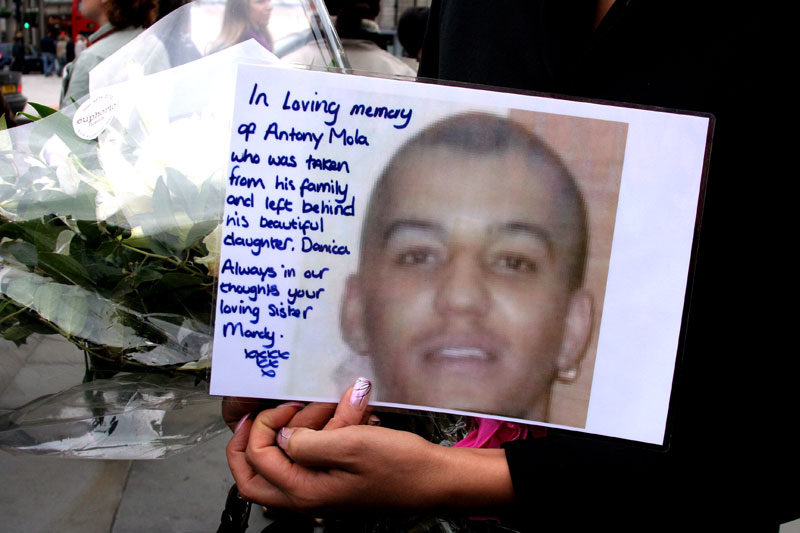 euphorie
In Loving memory
of Antony Mola
who was taken
from his family
and left behind
his beautiful
daughter, Danica
Always in our
thoughts your
loving Sister
Mandy.
xxxx
xx
x